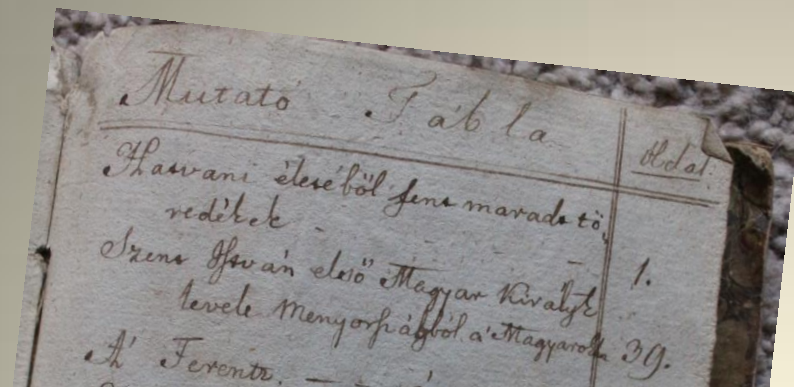 Mutató Tábla
óldal:
Hatvani életéből fent maradt tö,
redékek - 1.
Szent István első Magyar Királyk
levele menyországból a' Magyarokh 39.
A' Ferentz. —